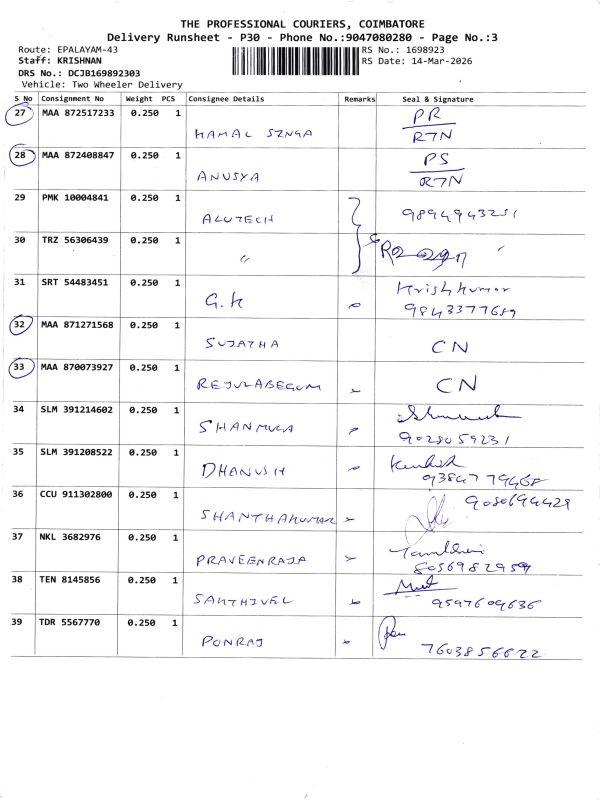 THE PROFESSIONAL COURIERS, COIMBATORE
Delivery Runsheet - P30 - Phone No.:9047080280 - Page No.:3
Route: EPALAYAM-43 RS No.: 1698923
Staff: KRISHNAN RS Date: 14-Mar-2026
DRS No.: DCJB169892303
Vehicle: Two Wheeler Delivery
S No Consignment No Weight PCS Consignee Details Remarks Seal & Signature
27 MAA 872517233 0.250 1 PR
KAMAL SINGA RTN
28 MAA 872408847 0.250 1 PS
ANUSYA RTN
29 PMK 10004841 0.250 1
ALUTECH 9894943251
30 TRZ 56306439 0.250 1
〃
31 SRT 54483451 0.250 1 Krishkumar
G.K 9843377689
32 MAA 871271568 0.250 1
SUJATHA CN
33 MAA 870073927 0.250 1
REJULABEGUM CN
34 SLM 391214602 0.250 1
SHANMUGA 9028059231
35 SLM 391208522 0.250 1
DHANUSH 9384779468
36 CCU 911302800 0.250 1 9080694429
SHANTHAKUMAR
37 NKL 3682976 0.250 1
PRAVEENRAJA 8056982959
38 TEN 8145856 0.250 1
SAKTHIVEL 9597609636
39 TDR 5567770 0.250 1
PONRAJ 7603856622